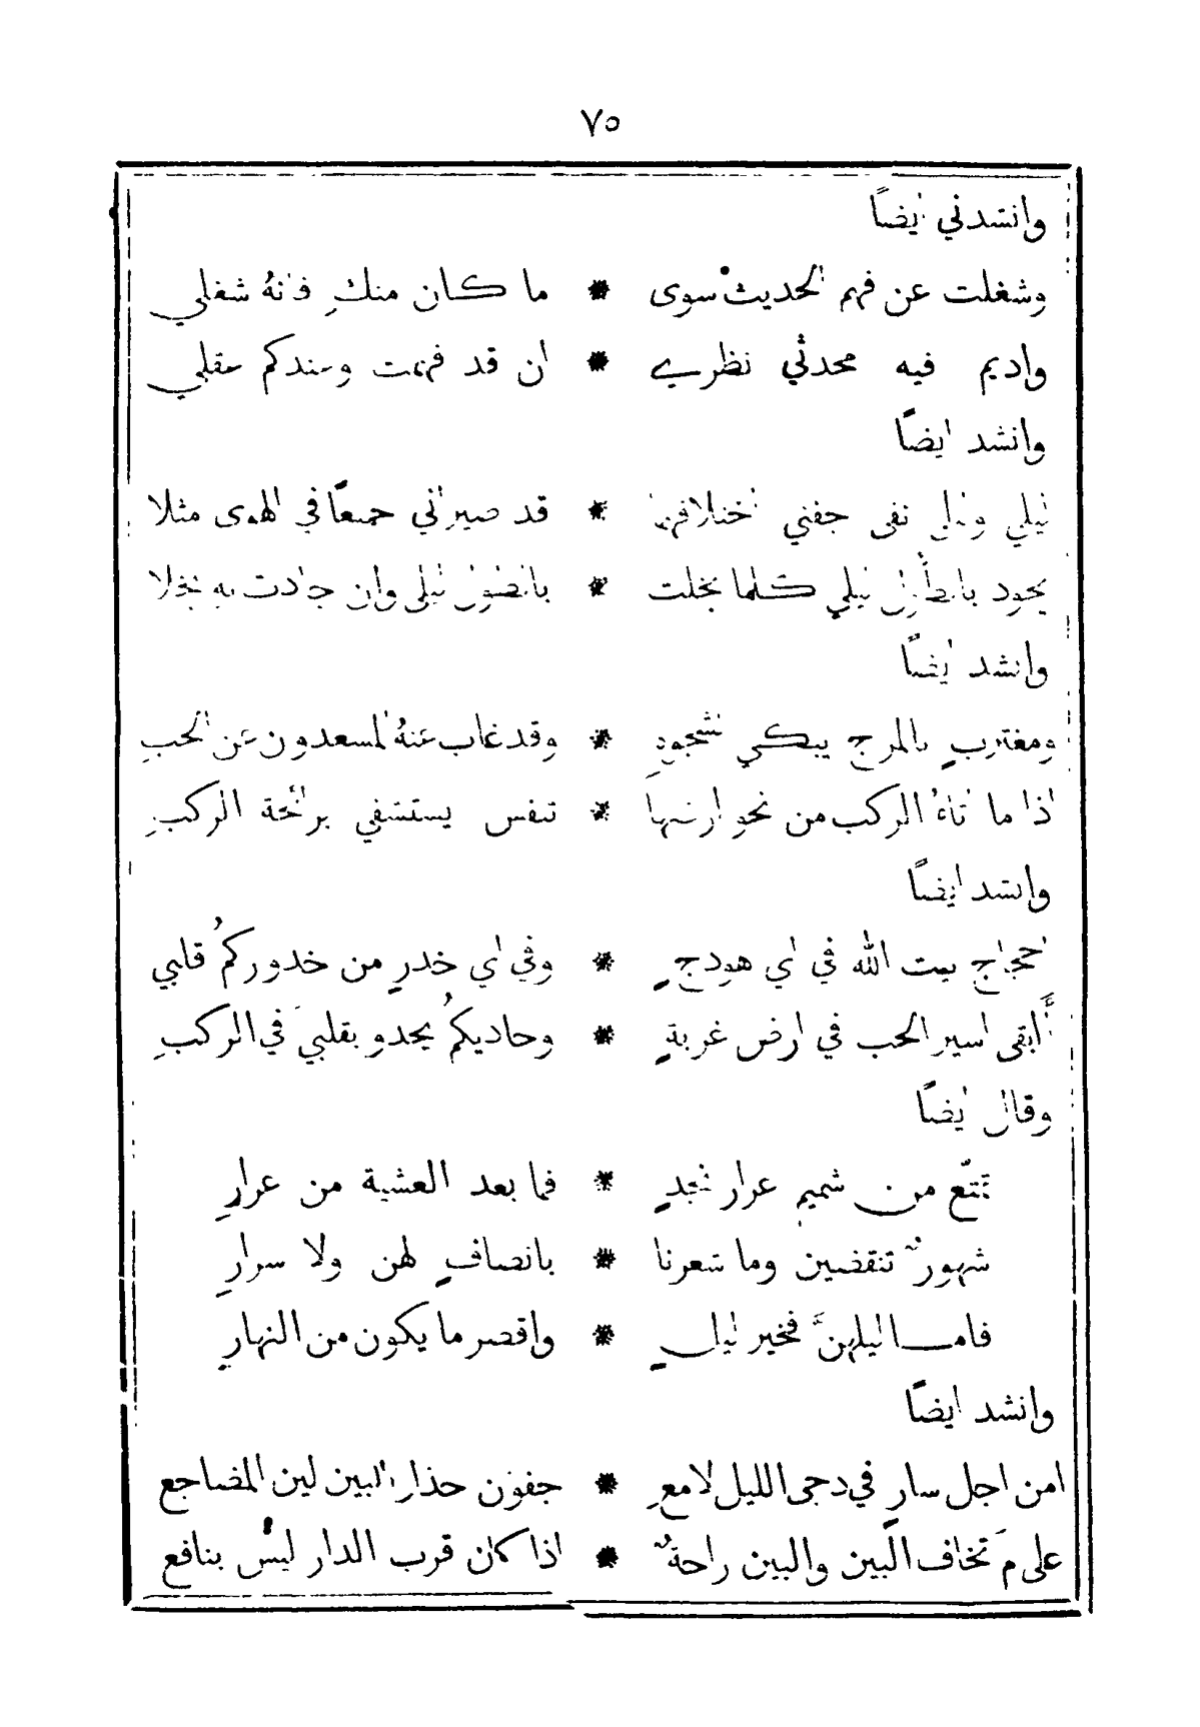 ٧٥
وانشدني ايضاً
وشغلت عن فهم الحديث سوى * ما كان منكِ فانهُ شغلي
واديم فيه محدثي نظري * ان قد فهمت وعندكم عقلي
وانشد ايضاً
ليلي وليلى نفى جفني اختلافهما * قد صيراني جميعاً في الهوى مثلا
يجود بالطُول ليلي كلما بخلت * بالطول ليلى وان جادت به بخلا
وانشد ايضاً
ومغتربٍ بالمرج يبكي لشجوهِ * وقد غاب عنهُ المسعدون عن الحبِ
اذا ما اتاهُ الركب من نحو ارضها * تنفس يستشفي برائحة الركبِ
وانشد ايضاً
احجاج بيت الله في اي هودجٍ * وفي اي خدرٍ من خدوركمُ قلبي
أَأبقى اسير الحب في ارض غربةٍ * وحاديكمُ يحدو بقلبيَ في الركبِ
وقال ايضاً
تمتّع من شميم عرار نجدٍ * فما بعد العشية من عرارِ
شهورٌ تنقضين وما شعرنا * بانصافٍ لهن ولا سرارِ
فاما ليلهنَّ فخير ليلٍ * واقصر ما يكون من النهارِ
وانشد ايضاً
امن اجل سارٍ في دجى الليل لامعِ * جفون حذار البين لين المضاجع
على مَ تخاف البين والبين راحةٌ * اذا كان قرب الدار ليس بنافع